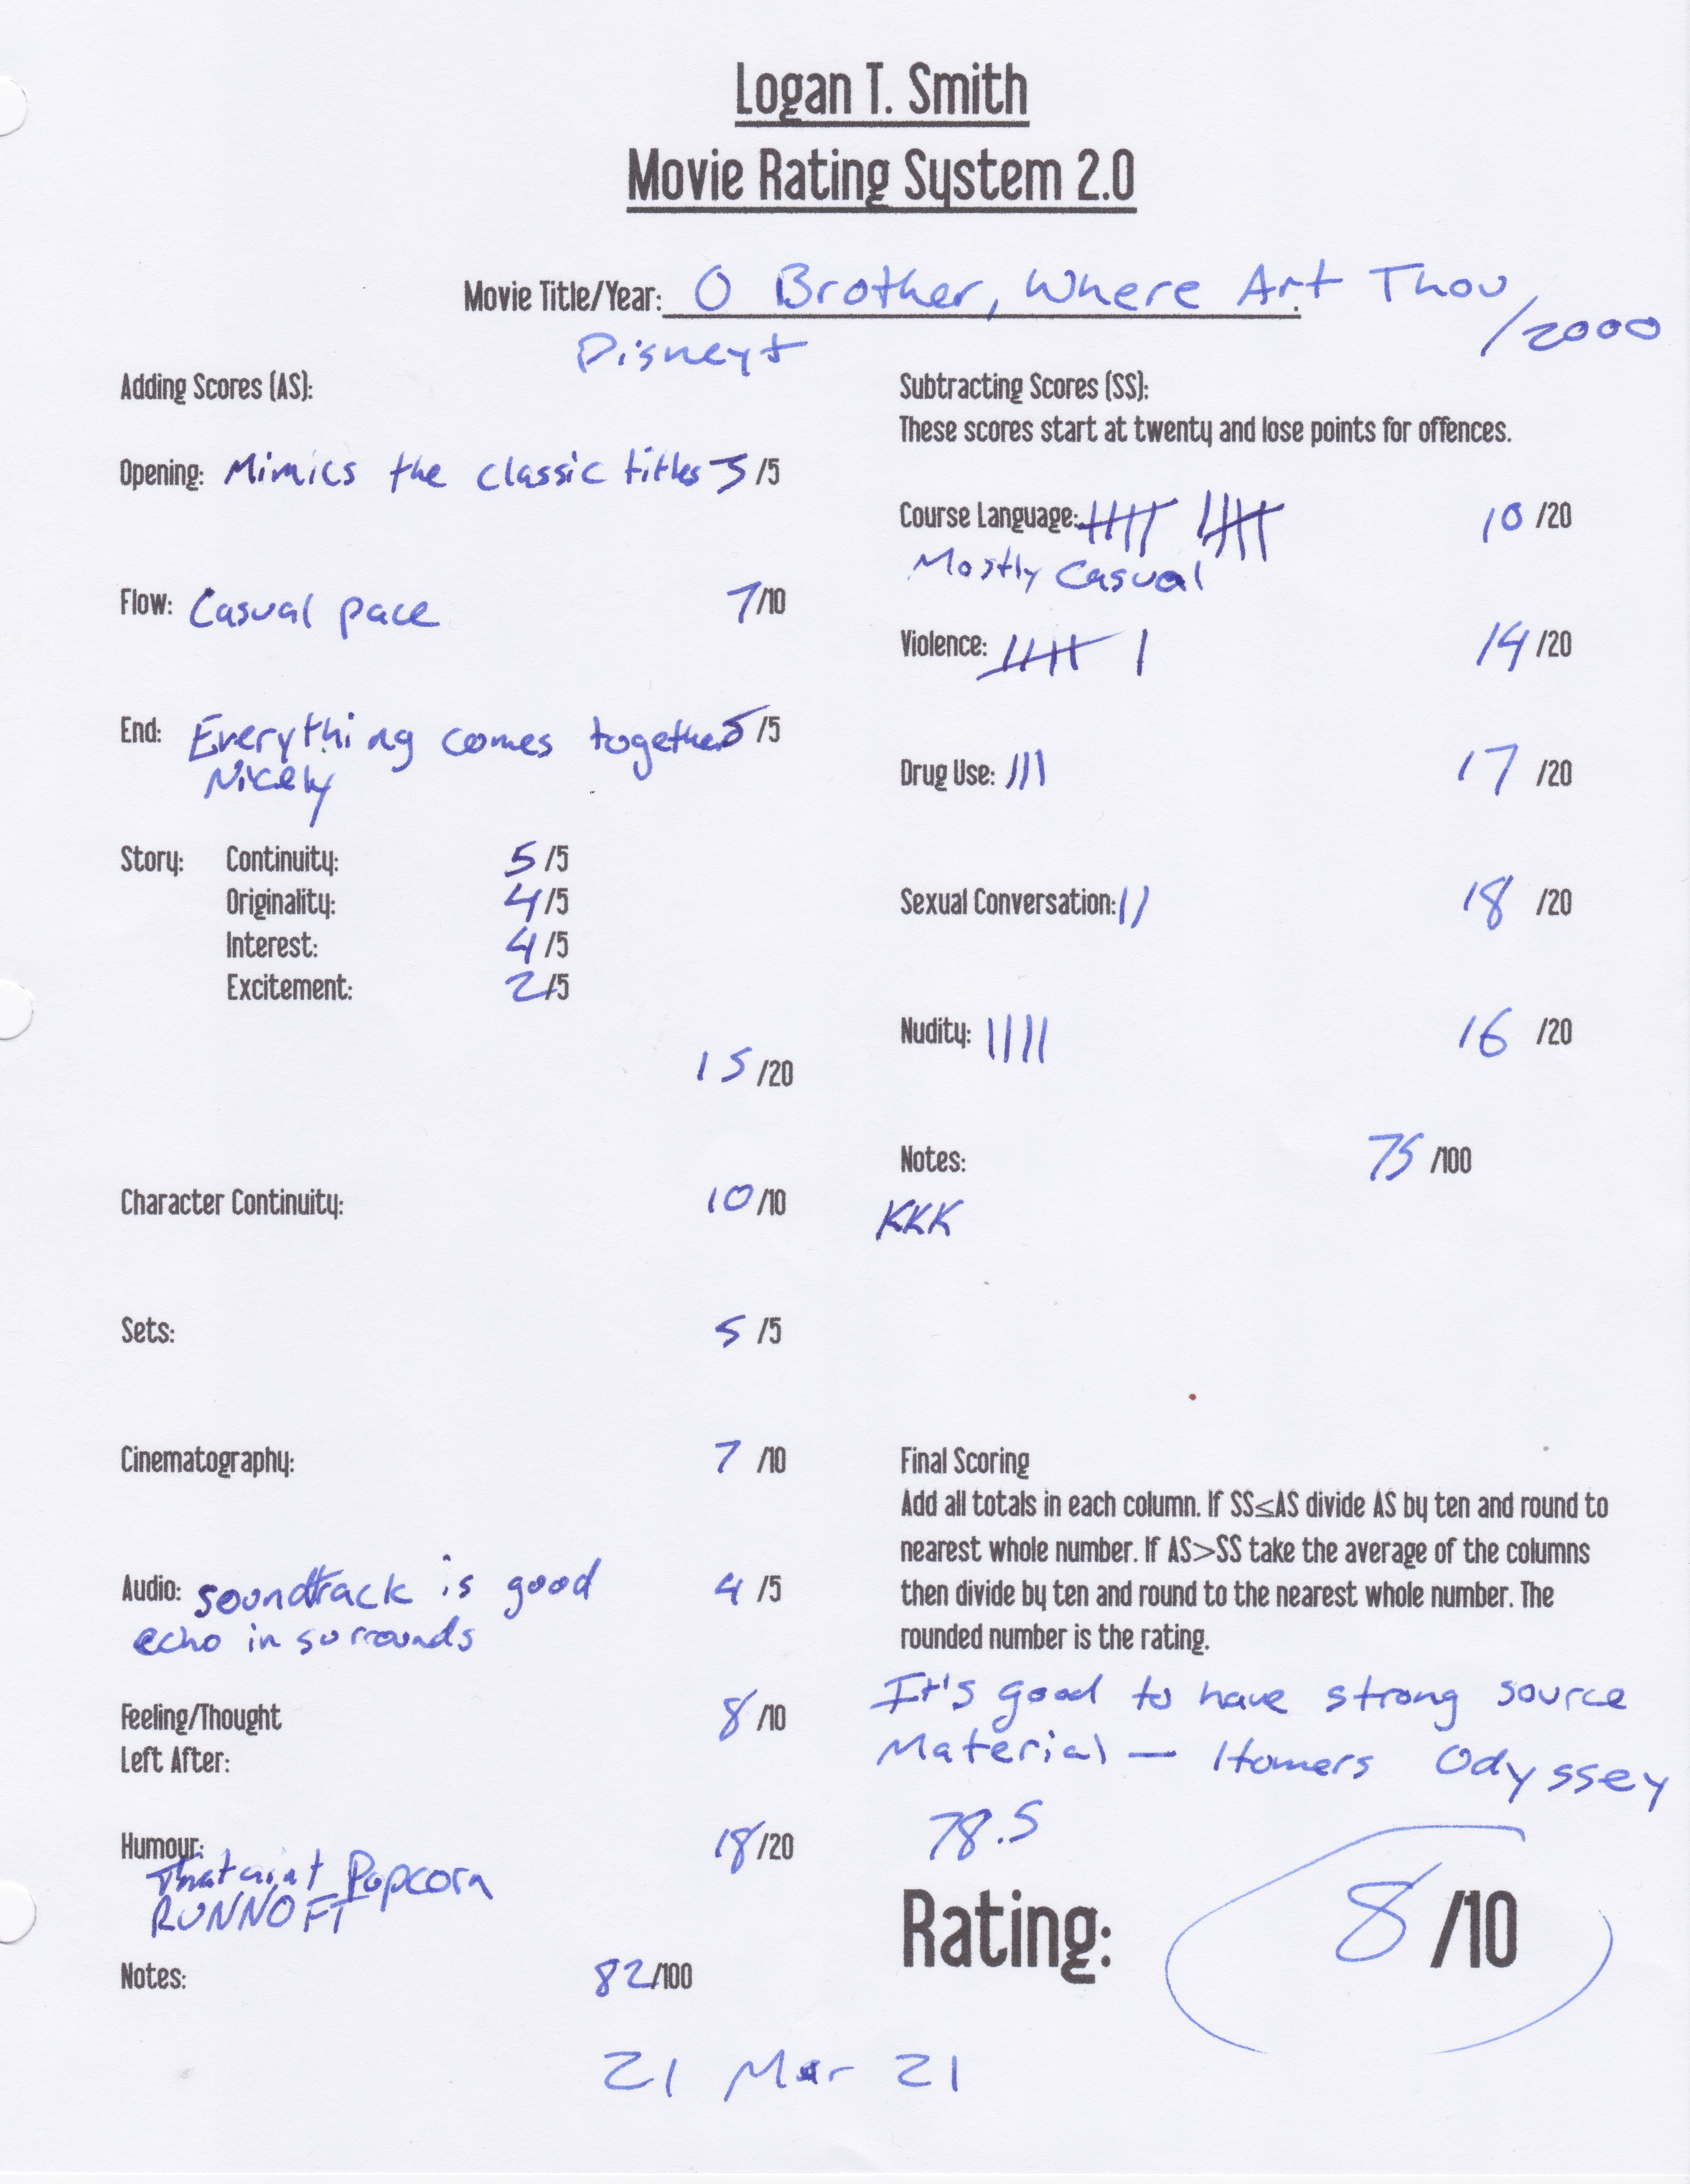 Logan T. Smith
Movie Rating System 2.0
Movie Title/Year: O Brother, Where Art Thou
/2000
Disney+
Adding Scores (AS):
Opening: Mimics the classic titles 3 /5
Flow: Casual pace 7/10
End: Everything comes together 5 /5
Nicely
Story: Continuity: 5 /5
Originality: 4/5
Interest: 4/5
Excitement: 2/5
15 /20
Character Continuity: 10/10
Sets: 5 /5
Cinematography: 7 /10
Audio: soundtrack is good 4 /5
echo in surrounds
Feeling/Thought 8/10
Left After:
Humour: 18/20
That aint Popcorn
RUNNOFT
Notes: 82/100
Subtracting Scores (SS):
These scores start at twenty and lose points for offences.
Course Language: 10 /20
Mostly Casual
Violence: 14/20
Drug Use: 17 /20
Sexual Conversation: 18 /20
Nudity: 16 /20
Notes: 75 /100
KKK
Final Scoring
Add all totals in each column. If SS≤AS divide AS by ten and round to
nearest whole number. If AS>SS take the average of the columns
then divide by ten and round to the nearest whole number. The
rounded number is the rating.
It's good to have strong source
Material — Homers Odyssey
78.5
Rating: 8 /10
21 Mar 21